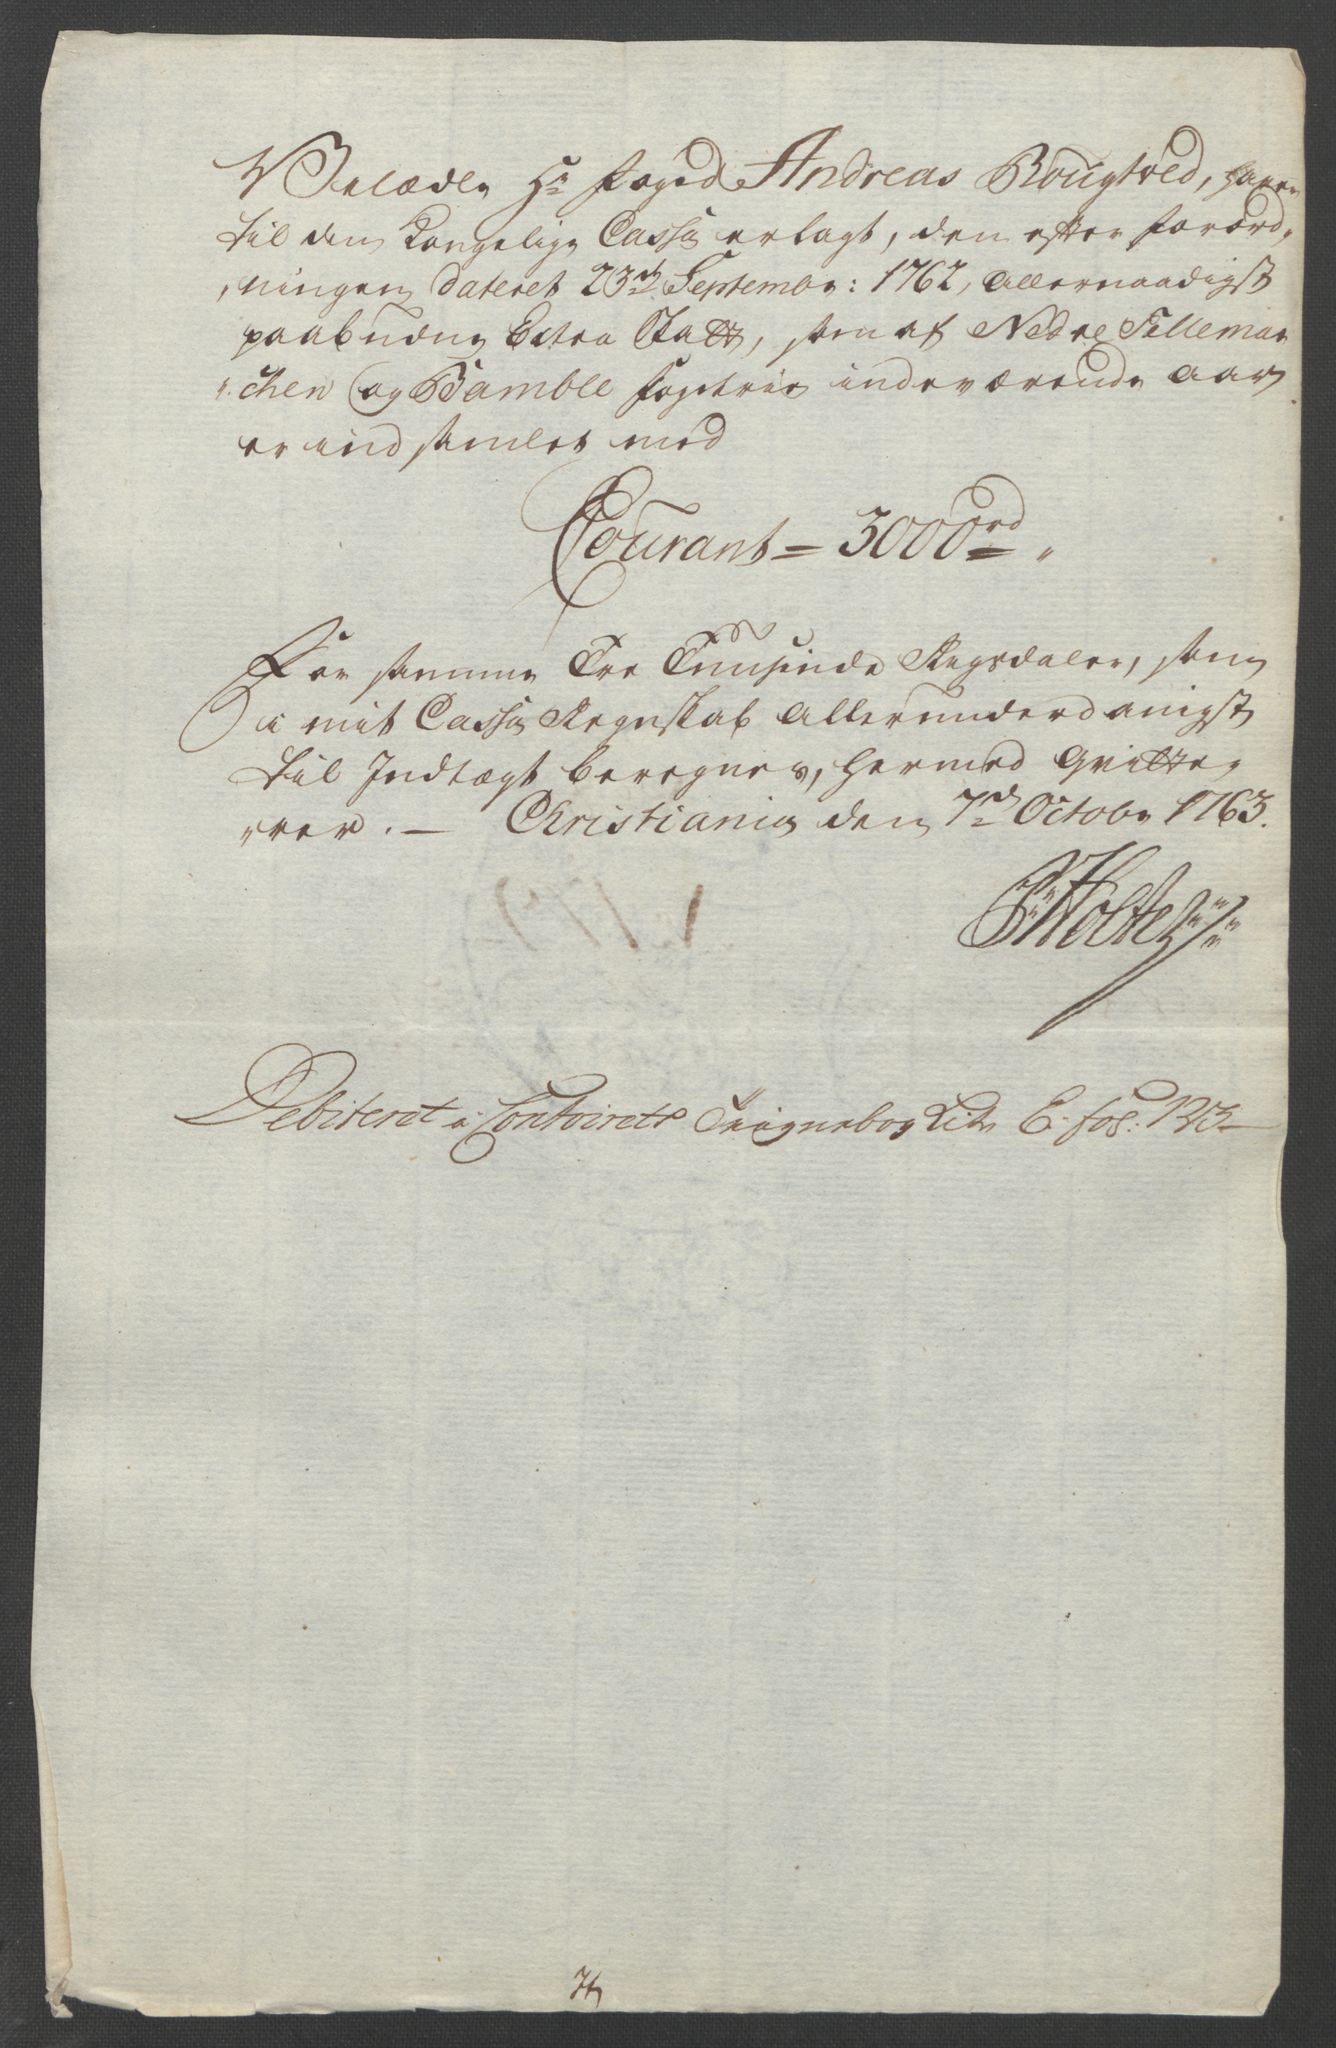 Velædle Hr Foged Andreas Rougtved, haver
til den Kongelige Cassa erlagt, den efter Forord-
ningen dateret 23de Septembr: 1762, allernaadigst
paabudne Extra Skatt, som af Nedre Tellemar-
chen og Bamble Fogderie indeværende Aar
er indsamlet med
Courant = 3000rd "
For samme Tre Tuusinde Rigsdaler, som
i mit Cassa Regnskab allerunderdanigst
til Indtægt beregnes, hermed qvitte-
rer. — Christiania den 7de Octobr 1763.
Holte
Debiteret i Contoirets Bog Litr E. fol: 123